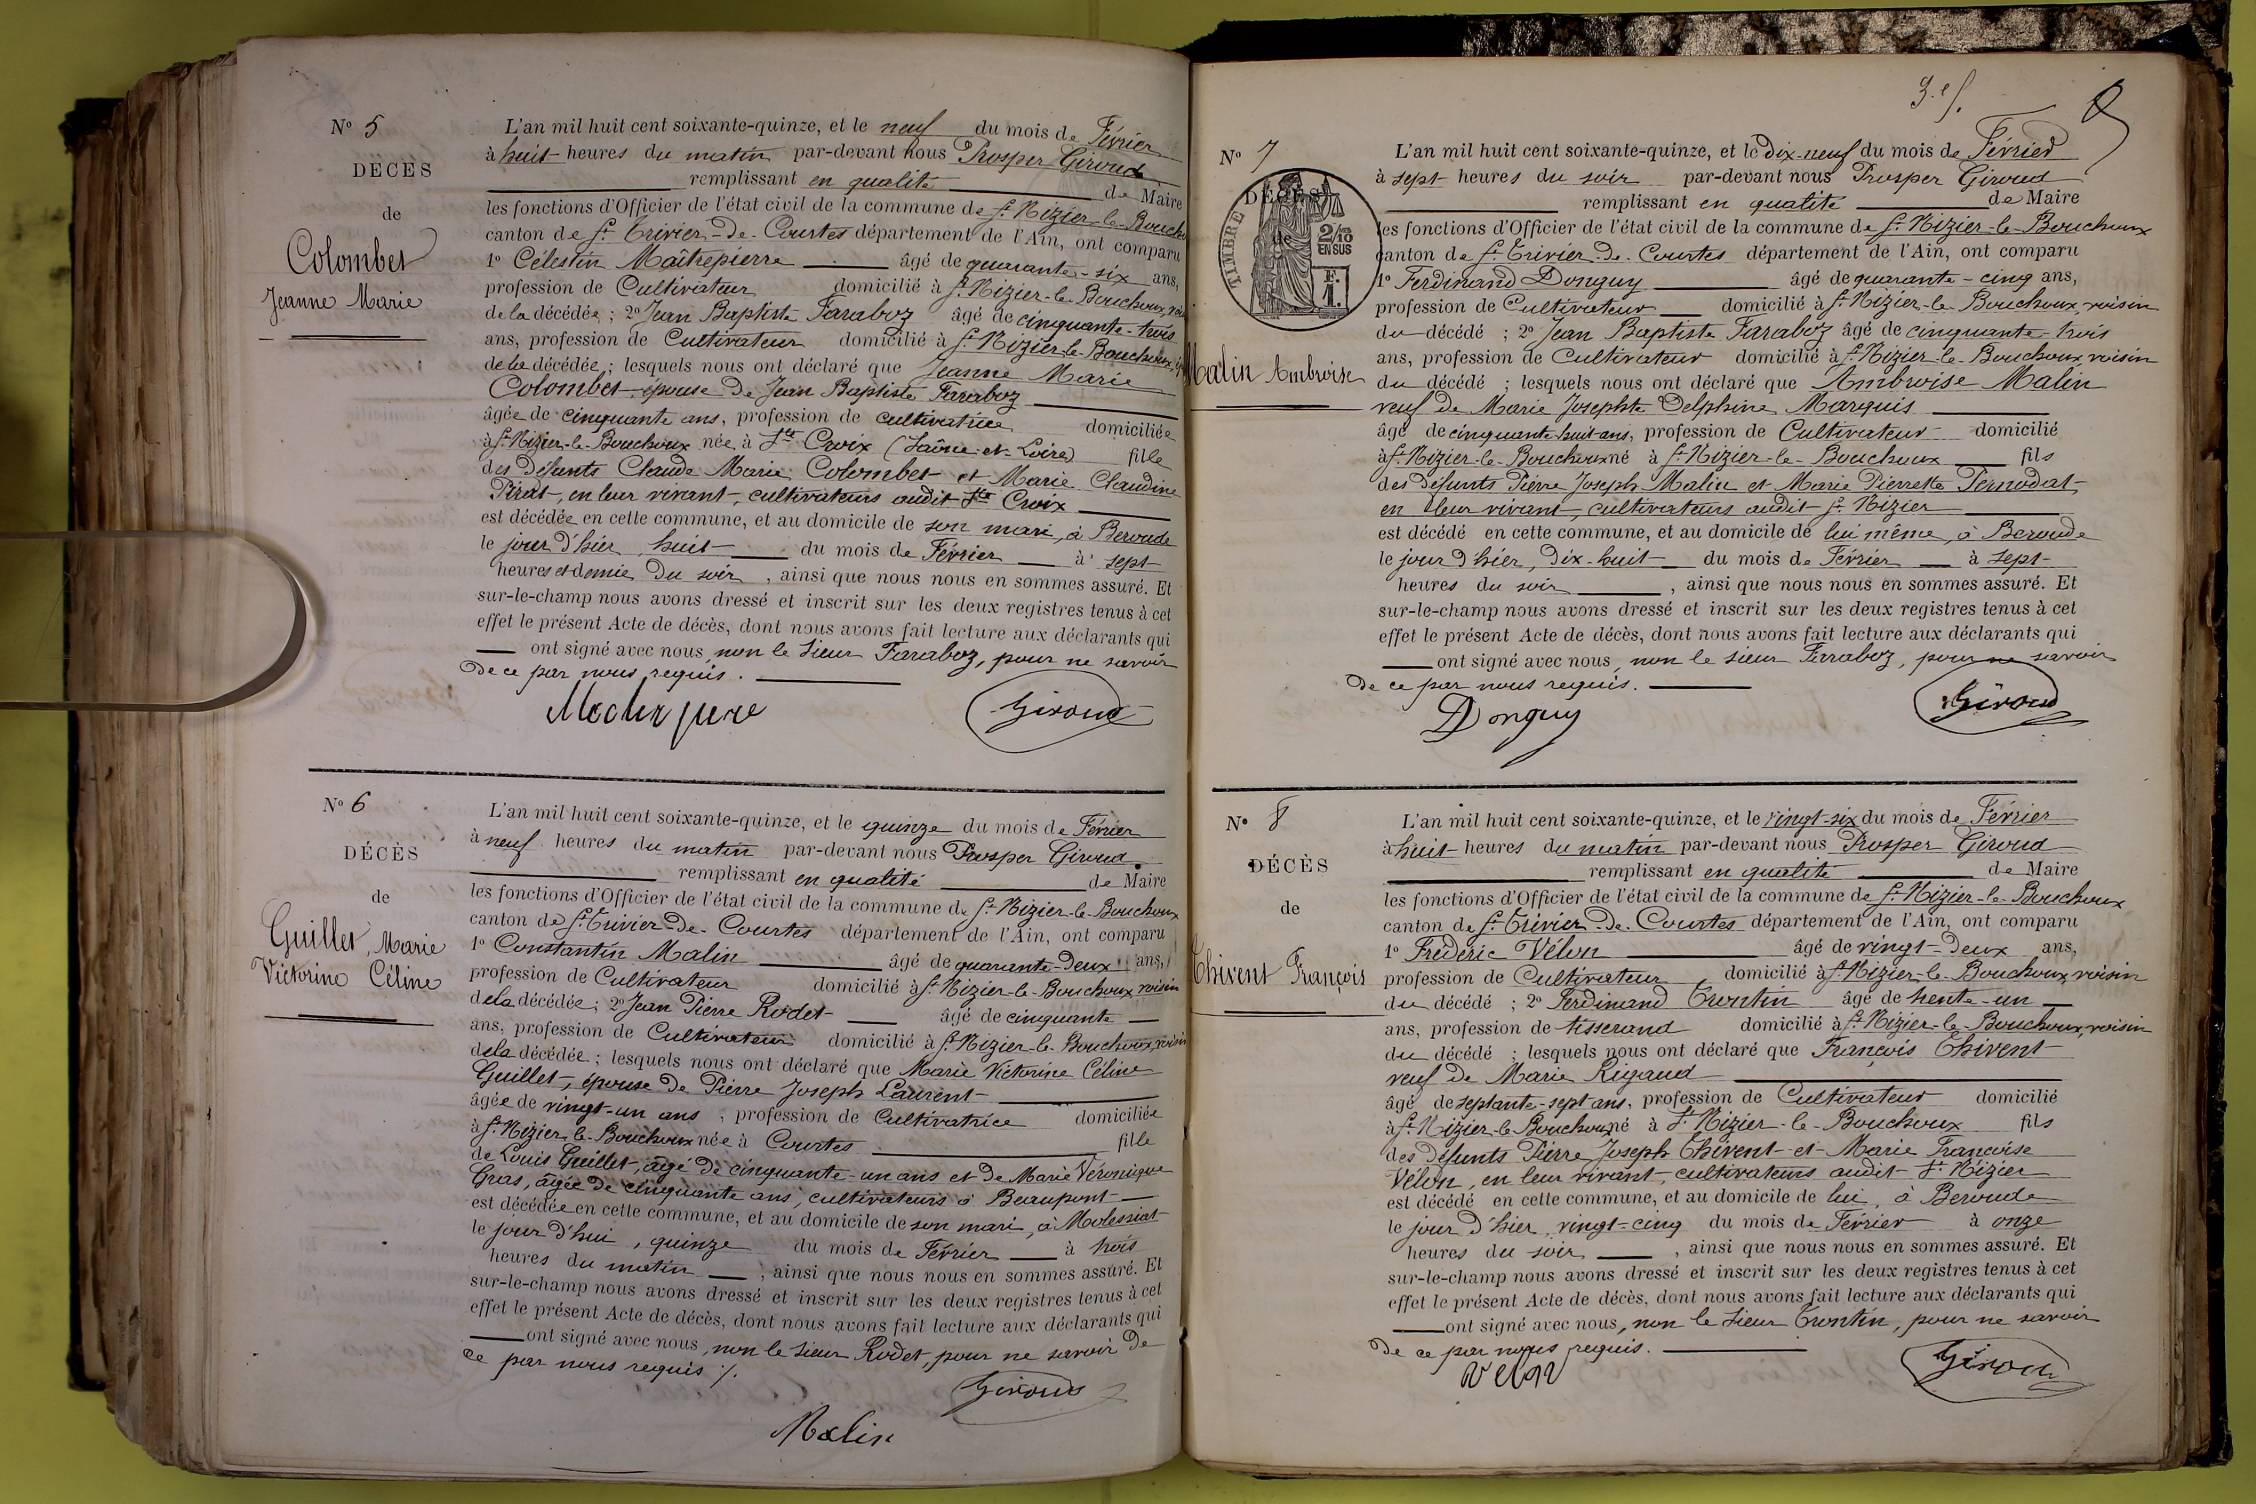 N° 5
DÉCÈS
de
Colombet
Jeanne Marie
L'an mil huit cent soixante-quinze, et le neuf du mois de Février
à huit heures du matin par-devant nous Prosper Giroud
remplissant en qualité de Maire
les fonctions d'Officier de l'état civil de la commune de St Nizier-le-Bouch
canton de St Trivier-de-Courtes département de l'Ain, ont comparu
1° Célestin Maîtrepierre âgé de quarante-six ans,
profession de Cultivateur domicilié à St Nizier-le-Bouchoux, voi
de la décédée ; 2° Jean Baptiste Faraboz âgé de cinquante-trois
ans, profession de Cultivateur domicilié à St Nizier-le-Bouchoux,
de la décédée ; lesquels nous ont déclaré que Jeanne Marie
Colombet épouse de Jean Baptiste Faraboz
âgée de cinquante ans, profession de cultivatrice domiciliée
à St Nizier-le-Bouchoux née à Ste Croix (Saône-et-Loire) fille
des défunts Claude Marie Colombet et Marie Claudine
Pirat, en leur vivant, cultivateurs audit Ste Croix
est décédée en cette commune, et au domicile de son mari, à Beroude
le jour d'hier huit du mois de Février à sept
heures et demie du soir, ainsi que nous nous en sommes assuré. Et
sur-le-champ nous avons dressé et inscrit sur les deux registres tenus à cet
effet le présent Acte de décès, dont nous avons fait lecture aux déclarants qui
ont signé avec nous, non le sieur Faraboz, pour ne savoir
de ce par nous requis.
Giroud
N° 6
DÉCÈS
de
Guillet, Marie
Victorine Céline
L'an mil huit cent soixante-quinze, et le quinze du mois de Février
à neuf heures du matin par-devant nous Prosper Giroud
remplissant en qualité de Maire
les fonctions d'Officier de l'état civil de la commune de St Nizier-le-Bouchoux
canton de St Trivier-de-Courtes département de l'Ain, ont comparu
1° Constantin Malin âgé de quarante-deux ans,
profession de Cultivateur domicilié à St Nizier-le-Bouchoux, voisin
de la décédée ; 2° Jean Pierre Rodet âgé de cinquante
ans, profession de Cultivateur domicilié à St Nizier-le-Bouchoux, voisin
de la décédée ; lesquels nous ont déclaré que Marie Victorine Céline
Guillet, épouse de Pierre Joseph Laurent
âgée de vingt-un ans, profession de Cultivatrice domiciliée
à St Nizier-le-Bouchoux née à Courtes fille
de Louis Guillet, âgé de cinquante-un ans et de Marie Véronique
Gras, âgée de cinquante ans, cultivateurs à Beaupont
est décédée en cette commune, et au domicile de son mari, à Molessiat
le jour d'hui, quinze du mois de Février à trois
heures du matin, ainsi que nous nous en sommes assuré. Et
sur-le-champ nous avons dressé et inscrit sur les deux registres tenus à cet
effet le présent Acte de décès, dont nous avons fait lecture aux déclarants qui
ont signé avec nous, non le sieur Rodet, pour ne savoir de
ce par nous requis ./.
Giroud
Malin
3.e f.
N° 7
DÉCÈS
de
TIMBRE
2/10
EN SUS
F.
1.
Malin Ambroise
L'an mil huit cent soixante-quinze, et le dix-neuf du mois de Février
à sept heures du soir par-devant nous Prosper Giroud
remplissant en qualité de Maire
les fonctions d'Officier de l'état civil de la commune de St Nizier-le-Bouchoux
canton de St Trivier-de-Courtes département de l'Ain, ont comparu
1° Ferdinand Donguy âgé de quarante-cinq ans,
profession de Cultivateur domicilié à St Nizier-le-Bouchoux, voisin
du décédé ; 2° Jean Baptiste Faraboz âgé de cinquante-trois
ans, profession de Cultivateur domicilié à St Nizier-le-Bouchoux, voisin
du décédé ; lesquels nous ont déclaré que Ambroise Malin
veuf de Marie Josephte Delphine Marquis
âgé de cinquante-huit ans, profession de Cultivateur domicilié
à St Nizier-le-Bouchoux né à St Nizier-le-Bouchoux fils
des défunts Pierre Joseph Malin et Marie Pierrette Pernodat
en leur vivant, cultivateurs audit St Nizier
est décédé en cette commune, et au domicile de lui même, à Beroude
le jour d'hier, dix-huit du mois de Février à sept
heures du soir, ainsi que nous nous en sommes assuré. Et
sur-le-champ nous avons dressé et inscrit sur les deux registres tenus à cet
effet le présent Acte de décès, dont nous avons fait lecture aux déclarants qui
ont signé avec nous, non le sieur Farraboz, pour ne savoir
de ce par nous requis.
Donguy
Giroud
N° 8
DÉCÈS
de
Thivent François
L'an mil huit cent soixante-quinze, et le vingt-six du mois de Février
à huit heures du matin par-devant nous Prosper Giroud
remplissant en qualité de Maire
les fonctions d'Officier de l'état civil de la commune de St Nizier-le-Bouchoux
canton de St Trivier-de-Courtes département de l'Ain, ont comparu
1° Frédéric Vélon âgé de vingt-deux ans,
profession de Cultivateur domicilié à St Nizier-le-Bouchoux, voisin
du décédé ; 2° Ferdinand Trontin âgé de trente-un
ans, profession de tisserand domicilié à St Nizier-le-Bouchoux, voisin
du décédé ; lesquels nous ont déclaré que François Thivent
veuf de Marie Rigaud
âgé de septante-sept ans, profession de Cultivateur domicilié
à St Nizier-le-Bouchoux né à St Nizier-le-Bouchoux fils
des défunts Pierre Joseph Thivent et Marie Françoise
Vélon, en leur vivant, cultivateurs audit St Nizier
est décédé en cette commune, et au domicile de lui, à Beroude
le jour d'hier vingt-cinq du mois de Février à onze
heures du soir, ainsi que nous nous en sommes assuré. Et
sur-le-champ nous avons dressé et inscrit sur les deux registres tenus à cet
effet le présent Acte de décès, dont nous avons fait lecture aux déclarants qui
ont signé avec nous, non le sieur Trontin, pour ne savoir
de ce par nous requis.
Velon
Giroud